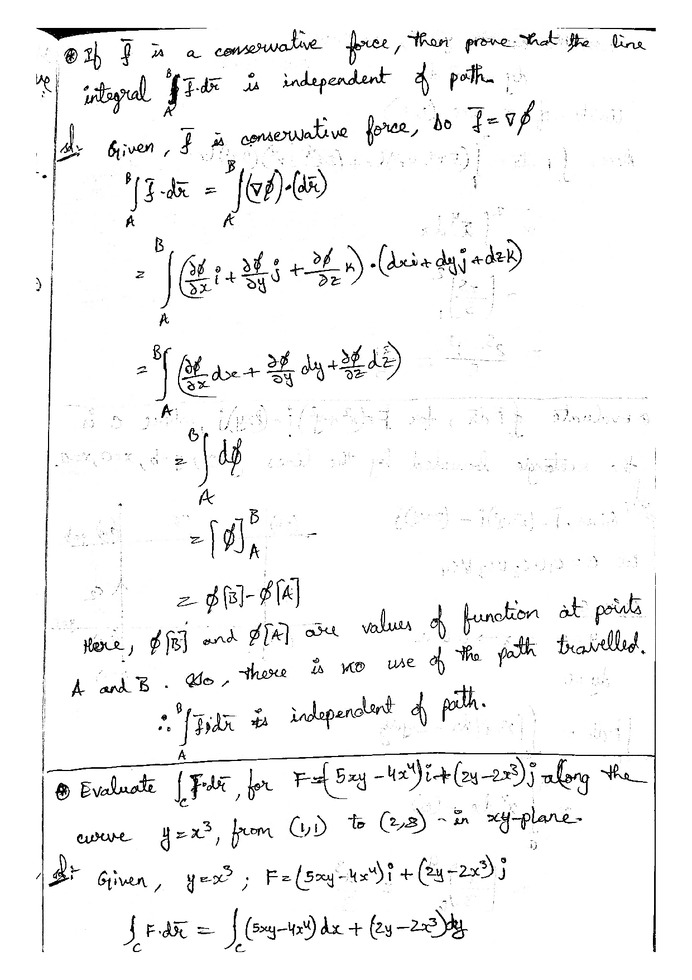 ⊛ If f̄ is a conservative force, then prove that the line
integral ∫_A^B f̄·dr̄ is independent of path.
Sol:- Given, f̄ is conservative force, so f̄ = ∇φ
∫_A^B f̄·dr̄ = ∫_A^B (∇φ)·(dr̄)
= ∫_A^B (∂φ/∂x i + ∂φ/∂y j + ∂φ/∂z k)·(dxi + dyj + dzk)
= ∫_A^B (∂φ/∂x dx + ∂φ/∂y dy + ∂φ/∂z dz)
= ∫_A^B dφ
= [φ]_A^B
= φ[B] - φ[A]
Here, φ[B] and φ[A] are values of function at points
A and B. So, there is no use of the path travelled.
∴ ∫_A^B f̄·dr̄ is independent of path.
⊛ Evaluate ∫_C F̄·dr̄, for F = (5xy - 4x⁴)i + (2y - 2x³)j along the
curve y = x³, from (1,1) to (2,8) in xy-plane.
Sol:- Given, y = x³ ; F = (5xy - 4x⁴)i + (2y - 2x³)j
∫_C F·dr̄ = ∫_C (5xy - 4x⁴)dx + (2y - 2x³)dy